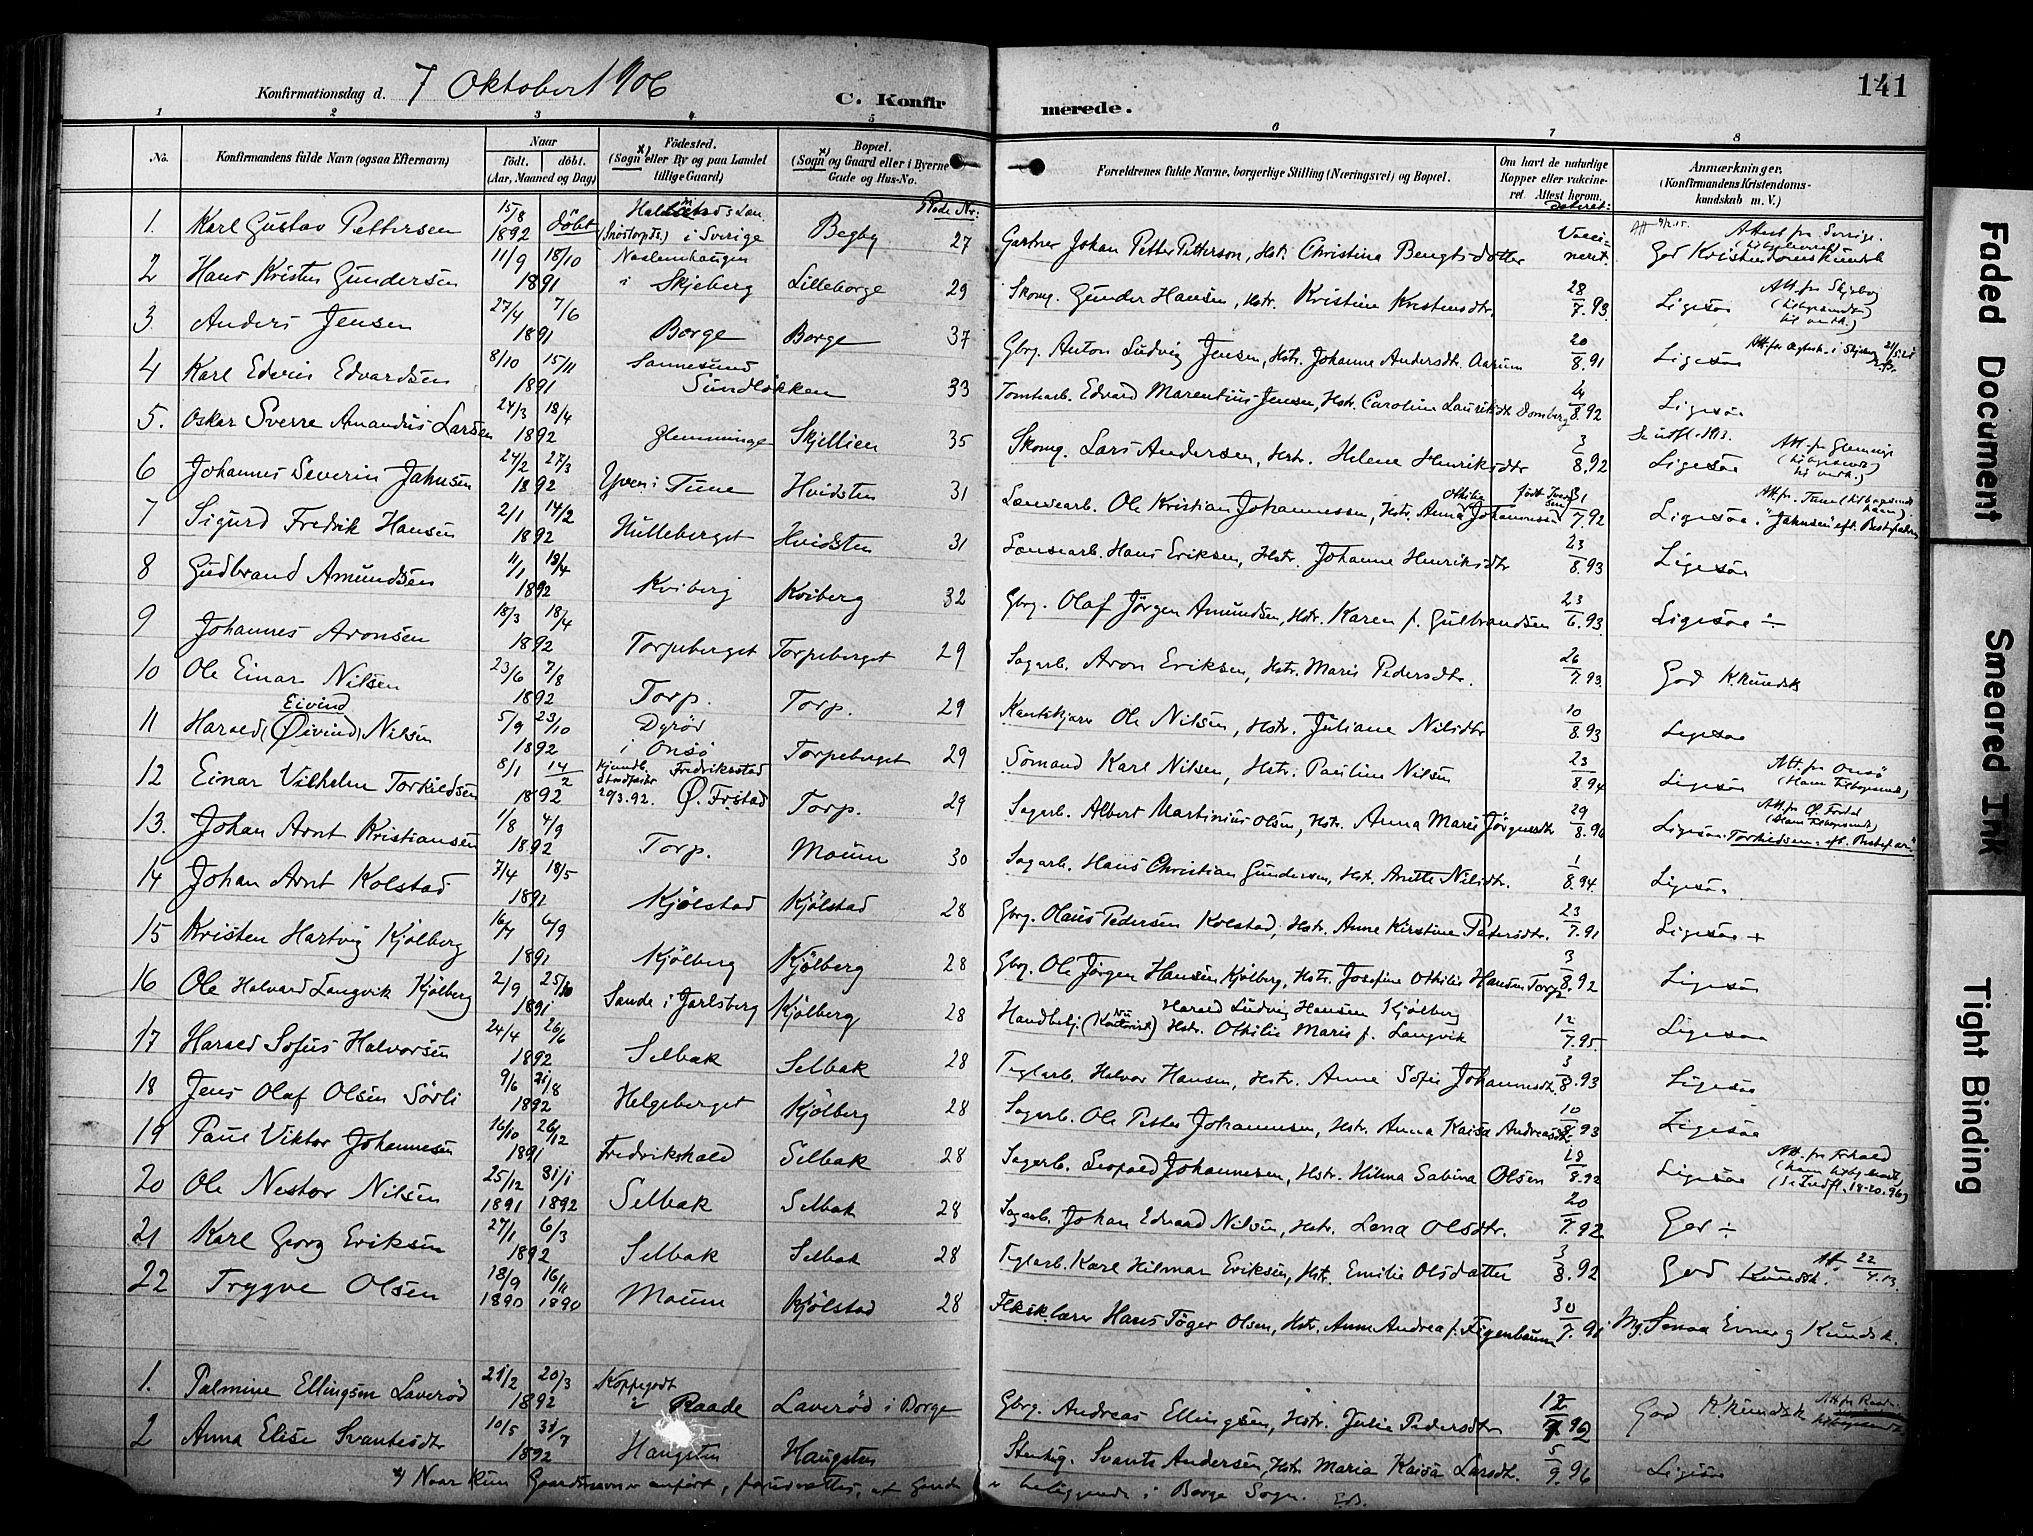 Konfirmationsdag d. 7 Oktober 1906
C. Konfirmerede.
141
1 2 3 4 5 6 7 8
No.
Konfirmandens fulde Navn (ogsaa Efternavn)
Naar
født. døbt.
(Aar, Maaned og Dag)
Fødested.
(Sogn x) eller By og paa Landet
tillige Gaard)
Bopæl.
(Sogn x) og Gaard eller i Byerne
Gade og Hus-No.
Forældrenes fulde Navne, borgerlige Stilling (Næringsvei) og Bopæl.
Om havt de naturlige
Kopper eller vakcine-
ret Attest herom,
dateret:
Anmærkninger.
(Konfirmandens Kristendoms-
kundskab m. V.)
Rode Nr:
1. Karl Gustav Pettersen 15/8 1892 døbt i Sverige Begby 27 Gartner Johan Petter Petterson, Hst. Christina Bengtsdotter Vacci-nert. God Kristendomskundsk Attest fra Sverige.
2 Hans Kristen Gundersen 11/9 18/10 1891 i Skjeberg Lilleborge 29 Skomg. Gunder Hansen, Hstr. Kristine Kristensdtr. 28/7.93. Ligesåa Att. fra Skjeberg
3. Anders Jensen 27/4 7/6 1891 Borge Borge 37 Gbrg. Anton Ludvig Jensen, Hstr. Johanne Andersdt. Aarum 20/8.91 Ligesaa
4 Karl Edvin Edvardsen 8/10 15/11 1891 Sannesund Sundløkken 33 Tomtearb. Edvard Marentius Jensen, Hstr. Caroline Lauritsdt Domberg 4/8.92 Ligesaa
5. Oskar Sverre Amandus Larsen 24/3 18/4 1892 Glemminge Skjellien 35 Skomg. Lars Andersen, Hstr. Helene Henriksdtr 2/8.92 Ligesaa Att. fra Glemminge
6 Johannes Severin Jahnsen 24/2 27/3 1892 Yven i Tune Hvidsten 31 Landsearb. Ole Kristian Johannessen, Hstr. Anna Othilie Johannessen 31/7.92 Ligesaa. "Jahnsen" eft. Bestefaderen
7 Sigurd Fredrik Hansen 2/1 14/2 1892 Hulleberget Hvidsten 31 Landsearb. Hans Eriksen, Hstr. Johanne Henriksdtr 23/8.93 Ligesaa
8 Gudbrand Amundsen 11/1 18/4 1892 Kviberg Kviberg 32 Gbrg. Olaf Jørgen Amundsen, Hstr. Karen f. Gulbrandsen 23/6.93. Ligesaa ÷
9 Johannes Aronsen 18/3 18/4 1892 Torpeberget Torpeberget 29 Sagarb. Aron Eriksen, Hstr. Marie Pedersdtr. 26/7.93. God K.kundsk
10 Ole Einar Nilsen 23/6 7/8 1892 Torp. Torp. 29 Kantskjærer Ole Nilsen, Hstr. Juliane Nilsdtr 10/8.93 Ligesaa
11 Harald (Øivind) Eivind Nilsen 5/9 23/10 1892 Dyrød i Onsø Torpeberget 29 Sømand Karl Nilsen, Hstr. Pauline Nilsen 23/8.94 Ligesaa Att. fra Onsø
12 Einar Vilhelm Torkildsen 8/1 14/2 1892 Fredriksstad 29.3.92. Ø. Fr.stad Torp. 29 Sagarb. Albert Martinius Olsen, Hstr. Anna Marie Jørgensdtr 29/8.96 Ligesaa. Torkildsen eft. Bestefar
13. Johan Arnt Kristiansen 1/8 4/9 1892 Torp. Moum 30 Sagarb. Hans Christian Gundersen, Hstr. Anette Nilsdtr. 1/8.94. Ligesaa
14 Johan Arnt Kolstad 7/4 18/5 1891 Kjølstad Kjølstad 28 Gbrg. Olaus Pedersen Kolstad, Hstr. Anne Kirstine Petersdtr. 23/7.91 Ligesaa +
15 Kristen Hartvig Kjølberg 16/7 6/9 1891 Kjølberg Kjølberg 28 Gbrg. Ole Jørgen Hansen Kjølberg, Hstr. Josefine Othilie Hansen Torp 3/8.92 Ligesaa
16 Ole Halvard Langvik Kjølberg 2/9 25/10 1891 Sande i Jarlsberg Kjølberg 28 Handbetj. (Nu Kontorist) Harald Ludvig Hansen Kjølberg Hstr. Othilie Marie f. Langvik 12/7.95. Ligesaa
17 Harald Sofus Halvorsen 24/4 26/6 1892 Selbak Selbak 28 Teglarb. Halvor Hansen, Hstr. Anne Sofie Johannesdt. 3/8.93 Ligesaa
18 Jens Olaf Olsen Sörli 9/6 21/8 1892 Helgeberget Kjølberg 28 Sagarb. Ole Petter Johannesen, Hstr. Anna Kaisa Andreasdt. 10/8.93 Ligesaa
19 Paul Viktor Johannesen 16/10 26/12 1891 Fredrikshald Selbak 28 Sagarb. Leopold Johannesen, Hstr. Hilma Sabina Olsen 18/8.92 Ligesaa Att. fra Frhald
20 Ole Nestor Nilsen 25/12 1891 31/1 1892 Selbak Selbak 28 Sagarb. Johan Edvard Nilsen, Hstr. Lena Olsdtr. 20/7.92 God ÷
21 Karl Georg Eriksen 27/1 6/3 1892 Selbak Selbak 28 Teglarb. Karl Hilmar Eriksen, Hst. Emilie Olsdatter 3/8.92 God Kundsk. Att. 22/4.13.
22 Trygve Olsen 18/9 1890 16/11 1890 Moum Kjølstad 28 Hans Tøger Olsen, Hstr. Anne Andrea f. Figenbaum 30/7.91 Mg. Smaa Evner og Kundsk.
1. Palmine Ellingsen Laverød 21/2 20/3 1892 Koppegodt i Raade Laverød i Borge Gbrg. Andreas Ellingsen, Hstr. Julie Pedersdtr 12/9.92 God K.kundsk Att. fra Raade
2 Anna Elise Svantesdtr 10/5 31/7 1892 Haugsten Haugsten Stenhug. Svante Andersen, Hstr Maria Kaisa Larsdt. 5/9.96 Ligesaa
x) Naar kun Gaardsnavn er anført, forudsættes, at Gaarden er beliggende i Borge Sogn. E.B.
Faded Document
Smeared Ink
Tight Binding